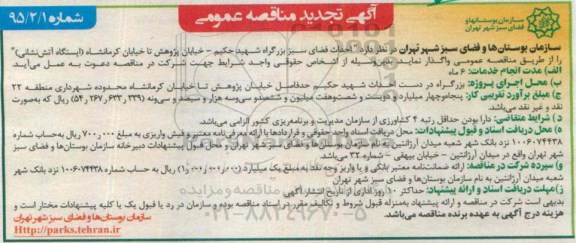 شماره ۹۵/۲/۱
آگهی تجدید مناقصه عمومی
سازمان بوستانهای
و فضای سبز شهر تهران
سازمان بوستان‌ها و فضای سبز شهر تهران در نظر دارد "احداث فضای سبز بزرگراه شهید حکیم - خیابان پژوهش تا خیابان کرمانشاه (ایستگاه آتش‌نشانی)"
را از طریق مناقصه عمومی واگذار نماید. بدین‌وسیله از اشخاص حقوقی واجد شرایط جهت شرکت در مناقصه دعوت به عمل می‌آید.
الف) مدت انجام خدمات: ۶ ماه
ب) محل اجرای پروژه: بزرگراه در دست احداث شهید حکیم حدفاصل خیابان پژوهش تا خیابان کرمانشاه محدوده شهرداری منطقه ۲۲
ج) مبلغ برآورد تقریبی کار: پنجاه‌وچهار میلیارد و دویست و شصت‌وهفت میلیون و ششصدو سی‌وسه هزار و سیصد و سی‌ونه (۵۴/۲۶۷/۶۳۳/۳۳۹) ریال که به‌صورت
نقد و غیر نقد می‌باشد.
د) شرایط متقاضی: دارا بودن حداقل رتبه ۴ کشاورزی از سازمان مدیریت و برنامه‌ریزی کشور الزامی می‌باشد.
ه) محل دریافت اسناد و قبول پیشنهادات: محل دریافت اسناد واحد حقوقی و قراردادها با ارائه معرفی‌نامه معتبر و فیش واریزی به مبلغ ۷۰۰/۰۰۰ ریال به‌حساب شماره
۱۰۰۶۰۷۴۴۳۸ نزد بانک شهر شعبه میدان آرژانتین به نام سازمان بوستان‌ها و فضای سبز شهر تهران و محل قبول پیشنهادات دبیرخانه سازمان بوستان‌ها و فضای سبز
شهر تهران واقع در میدان آرژانتین - خیابان بیهقی - شماره ۳۲ می‌باشد.
و) سپرده شرکت در مناقصه: ارائه ضمانتنامه معتبر بانکی و یا واریز وجه نقد به مبلغ یک میلیارد (۱/۰۰۰/۰۰۰/۰۰۰) ریال به حساب شماره ۱۰۰۶۰۷۴۴۳۸ نزد بانک شهر
شعبه میدان آرژانتین به نام سازمان بوستان‌ها و فضای سبز شهر تهران
ز) مهلت دریافت اسناد و ارائه پیشنهاد: حداکثر ۱۰ روز اداری از تاریخ انتشار آگهی
بدیهی است شرکت در مناقصه و ارائه پیشنهاد به‌منزله قبول شروط و تکالیف مقرر در اسناد مناقصه بوده و سازمان در رد یا قبول یک یا کلیه پیشنهادات مختار است و
هزینه درج آگهی به عهده برنده مناقصه می‌باشد.
سازمان بوستان‌ها و فضای سبز شهر تهران
Http://parks.tehran.ir
۰۲۱-۸۸۳۴۹۶۷۰-۵